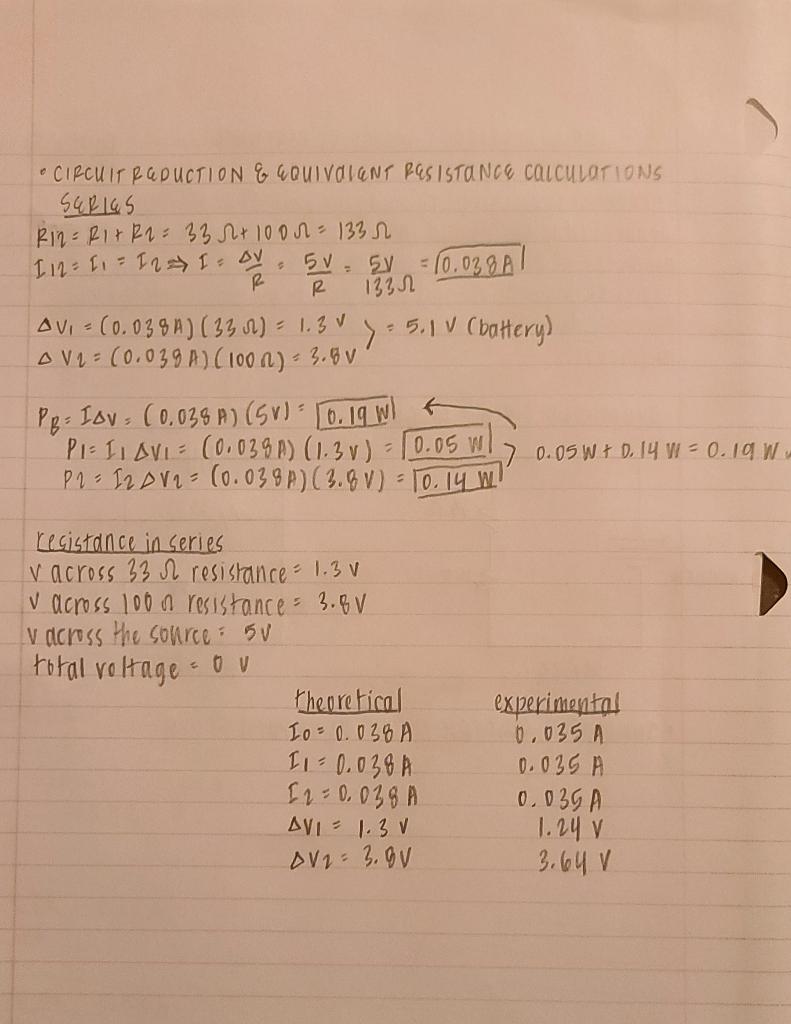 • CIRCUIT REDUCTION & EQUIVALENT RESISTANCE CALCULATIONS
SERIES
R12 = R1 + R2 = 33 Ω + 100 Ω = 133 Ω
I12 = I1 = I2 ⇒ I = ΔV/R = 5V/R = 5V/133Ω = 0.038A
ΔV1 = (0.038A)(33Ω) = 1.3 V } = 5.1 V (battery)
ΔV2 = (0.038A)(100Ω) = 3.8V
PB = IΔV = (0.038A)(5V) = 0.19 W
P1 = I1 ΔV1 = (0.038A)(1.3V) = 0.05 W } 0.05W + 0.14W = 0.19 W
P2 = I2 ΔV2 = (0.038A)(3.8V) = 0.14 W
resistance in series
V across 33 Ω resistance = 1.3 V
V across 100 Ω resistance = 3.8V
V across the source = 5V
total voltage = 0 V
theoretical experimental
I0 = 0.038 A 0.035 A
I1 = 0.038A 0.035 A
I2 = 0.038 A 0.035A
ΔV1 = 1.3 V 1.24 V
ΔV2 = 3.8V 3.64 V